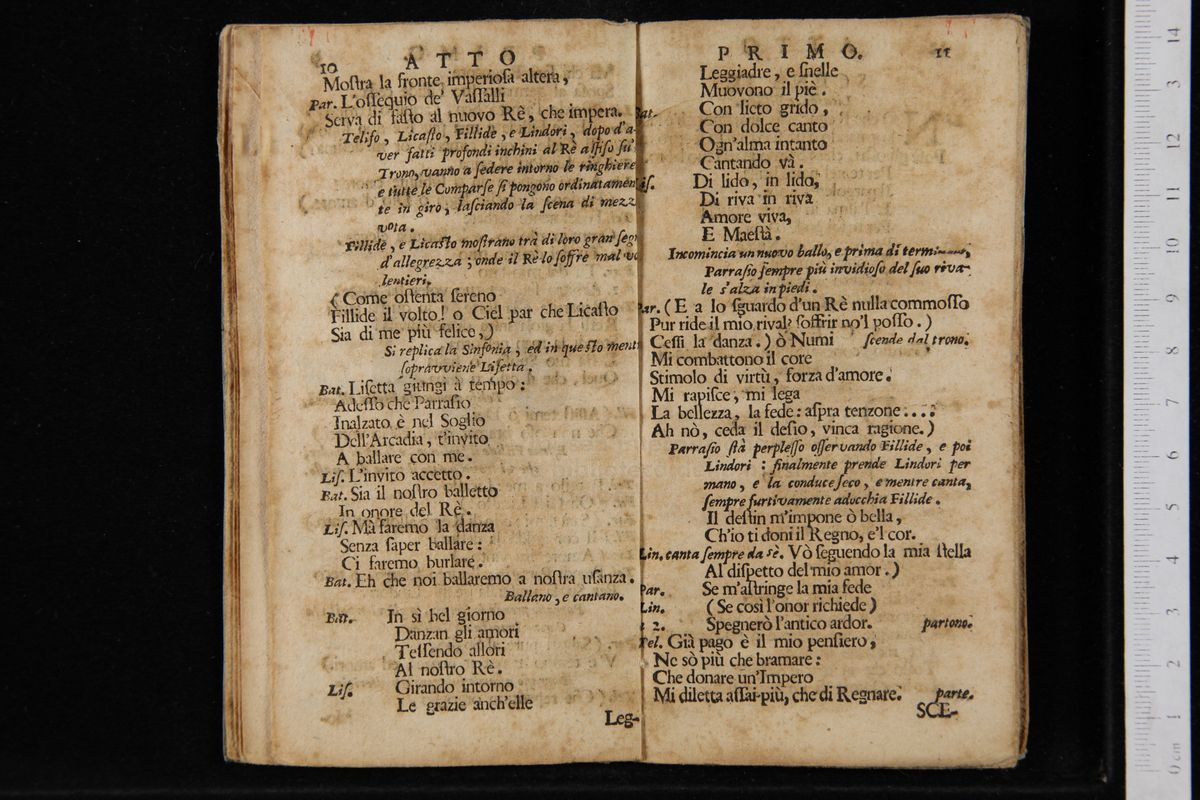 10 ATTO
Moſtra la fronte imperioſa altera,
Par. L'oſſequio de' Vaſſalli
Serva di faſto al nuovo Rè, che impera.
Teliſo, Licaſto, Fillide, e Lindori, dopo d'a-
ver fatti profondi inchini al Rè aſſiſo ſu'
Trono, vanno a ſedere intorno le ringhiere
e tutte le Comparſe ſi pongono ordinatamen
te in giro, laſciando la ſcena di mezz
vota.
Fillide, e Licaſto moſtrano trà di loro gran ſegn
d'allegrezza; onde il Rè lo ſoffre mal vo
lentieri.
(Come oſtenta ſereno
Fillide il volto! o Ciel par che Licaſto
Sia di me più felice,)
Si replica la Sinfonia, ed in queſto ment
ſopravviene Liſetta.
Bat. Liſetta giungi à tempo:
Adeſſo che Parraſio
Inalzato è nel Soglio
Dell'Arcadia, t'invito
A ballare con me.
Liſ. L'invito accetto.
Bat. Sia il noſtro balletto
In onore del Rè.
Liſ. Mà faremo la danza
Senza ſaper ballare:
Ci faremo burlare.
Bat. Eh che noi ballaremo a noſtra uſanza.
Ballano, e cantano.
Bat. In sì bel giorno
Danzan gli amori
Teſſendo allori
Al noſtro Rè.
Liſ. Girando intorno
Le grazie anch'elle
Leg-
PRIMO. 11
Leggiadre, e ſnelle
Muovono il piè.
Bat. Con lieto grido,
Con dolce canto
Ogn'alma intanto
Cantando và.
Liſ. Di lido, in lido,
Di riva in riva
Amore viva,
E Maeſtà.
Incomincia un nuovo ballo, e prima di terminare,
Parraſio ſempre più invidioſo del ſuo riva-
le s'alza in piedi.
Par. (E a lo ſguardo d'un Rè nulla commoſſo
Pur ride il mio rival? ſoffrir no'l poſſo.)
Ceſſi la danza.) ò Numi ſcende dal trono.
Mi combattono il core
Stimolo di virtù, forza d'amore.
Mi rapiſce, mi lega
La bellezza, la fede: aſpra tenzone....
Ah nò, ceda il deſio, vinca ragione.)
Parraſio ſtà perpleſſo oſſervando Fillide, e poi
Lindori: finalmente prende Lindori per
mano, e la conduce ſeco, e mentre canta,
ſempre furtivamente adocchia Fillide.
Il deſtin m'impone ò bella,
Ch'io ti doni il Regno, e'l cor.
Lin. canta ſempre da sè. Vò ſeguendo la mia ſtella
Al diſpetto del mio amor.)
Par. Se m'aſtringe la mia fede
Lin. (Se così l'onor richiede)
à 2. Spegnerò l'antico ardor. partono.
Tel. Già pago è il mio penſiero,
Ne sò più che bramare:
Che donare un'Impero
Mi diletta aſſai più, che di Regnare. parte.
SCE-
14
13
12
11
10
9
8
7
6
5
4
3
2
1
0 cm